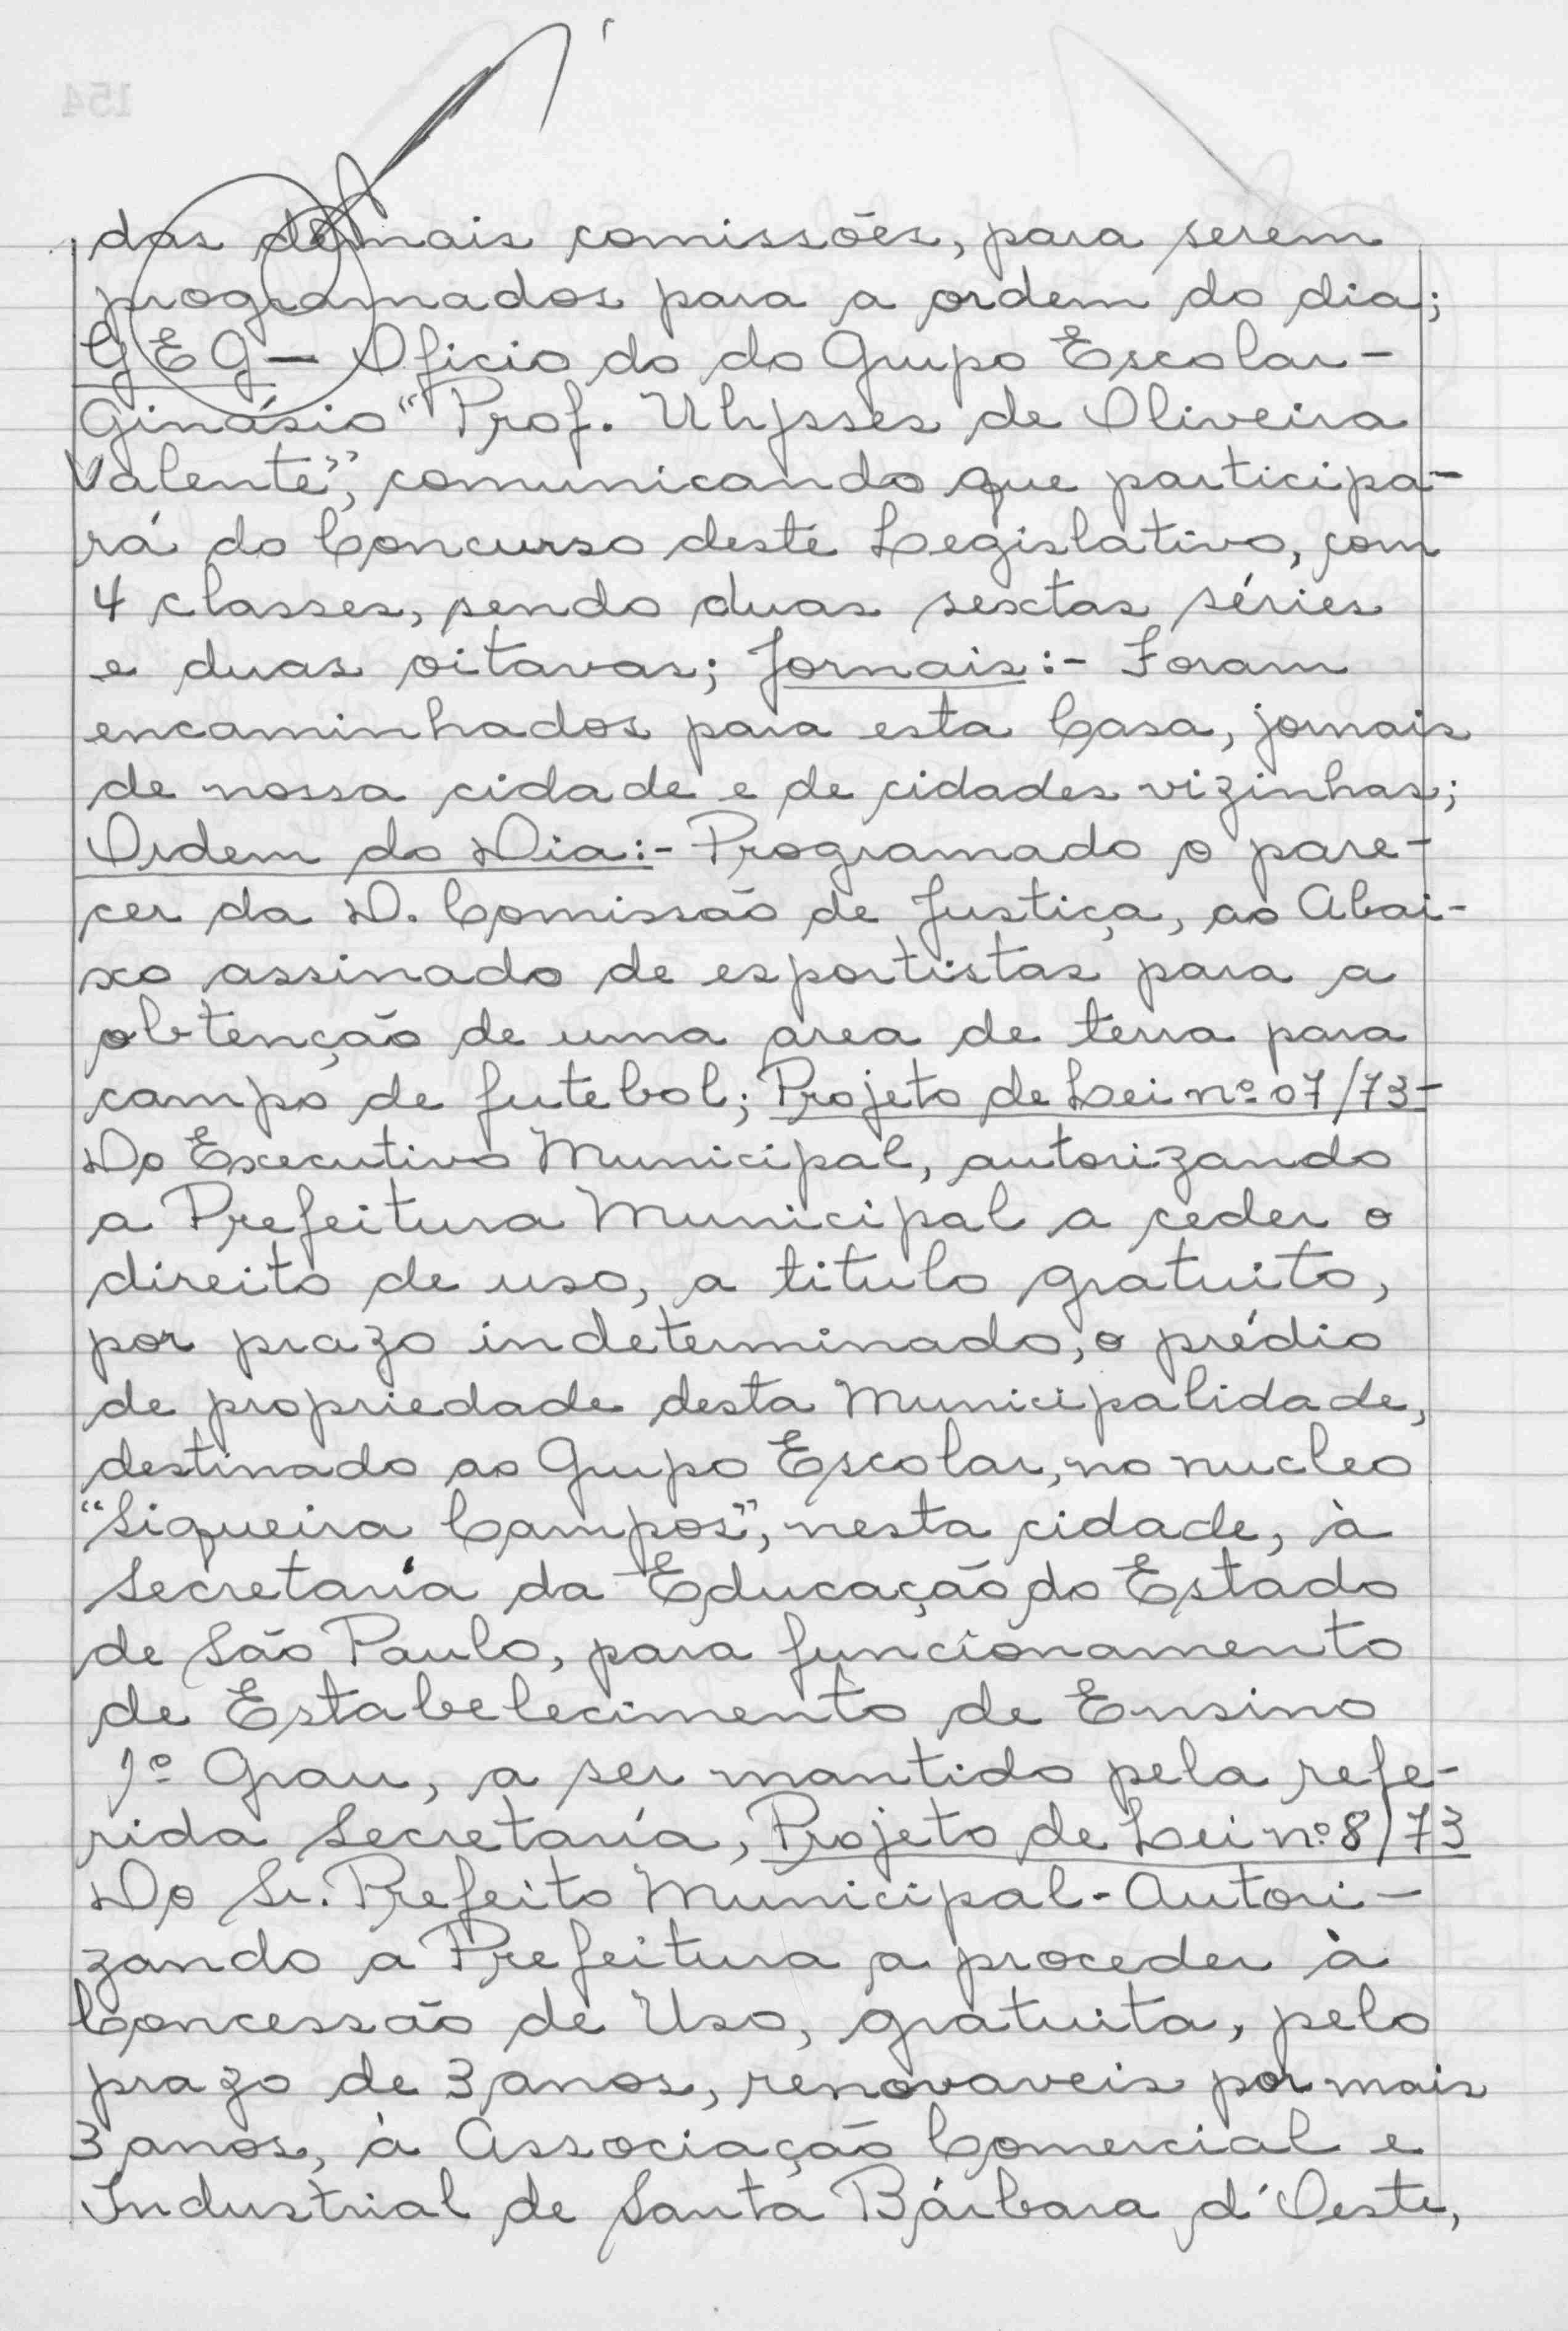 das demais comissões, para serem
programados para a ordem do dia;
GEG — Oficio do do Grupo Escolar-
Ginásio "Prof. Ulhysses de Oliveira
Valente", comunicando que participa-
rá do Concurso deste Legislativo, com
4 classes, sendo duas sextas séries
e duas oitavas; Jornais:- Foram
encaminhados para esta Casa, jornais
de nossa cidade e de cidades vizinhas;
Ordem do Dia:- Programado o pare-
cer da D. Comissão de Justiça, ao Abai-
xo assinado de esportistas para a
obtenção de uma area de terra para
campo de futebol; Projeto de Lei nº 07/73-
Do Executivo Municipal, autorizando
a Prefeitura Municipal a ceder o
direito de uso, a titulo gratuito,
por prazo indeterminado, o prédio
de propriedade desta Municipalidade,
destinado ao Grupo Escolar, no nucleo
"Siqueira Campos", nesta cidade, à
Secretaría da Educação do Estado
de São Paulo, para funcionamento
de Estabelecimento de Ensino
1º Grau, a ser mantido pela refe-
rida Secretaría, Projeto de Lei nº 8/73
Do Sr. Prefeito Municipal - Autori-
zando a Prefeitura a proceder à
Concessão de Uso, gratuita, pelo
prazo de 3 anos, renovaveis por mais
3 anos, à Associação Comercial e
Industrial de Santa Bárbara d'Oeste,